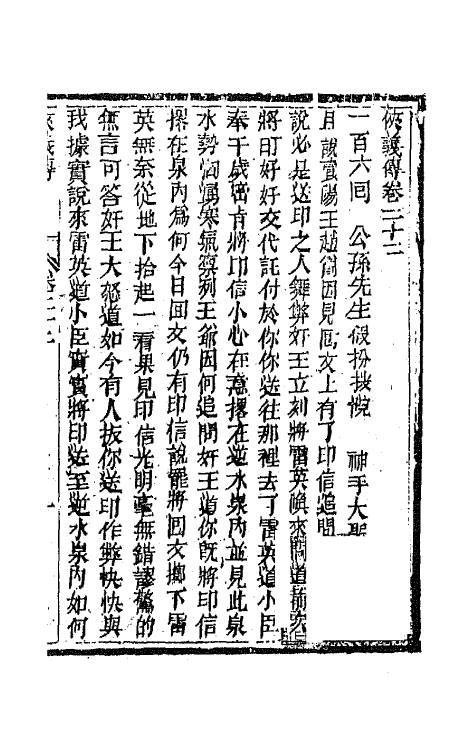 俠義傳卷二十二
一百六回　公孫先生假扮扶𢠢　神手大聖
且說襄陽王趙爵因見回文上有了印信追問
說必是送印之人舞弊奸王立刻將雷英喚來問道
將印好好交代託付於你你送往那裡去了雷英道小臣
奉千歲密旨將印信小心在意撂在逆水泉內並見此泉
水勢洶湧寒氣凜冽王爺因何追問奸王道你既將印信
撂在泉內為何今日回文仍有印信說罷將回文擲下雷
英無奈從地下拾起一看果見印信光明毫無錯謬驚的
無言可答奸王大怒道如今有人扳你送印作弊快快與
我據實說來雷英道小臣實實將印送至逆水泉內如何